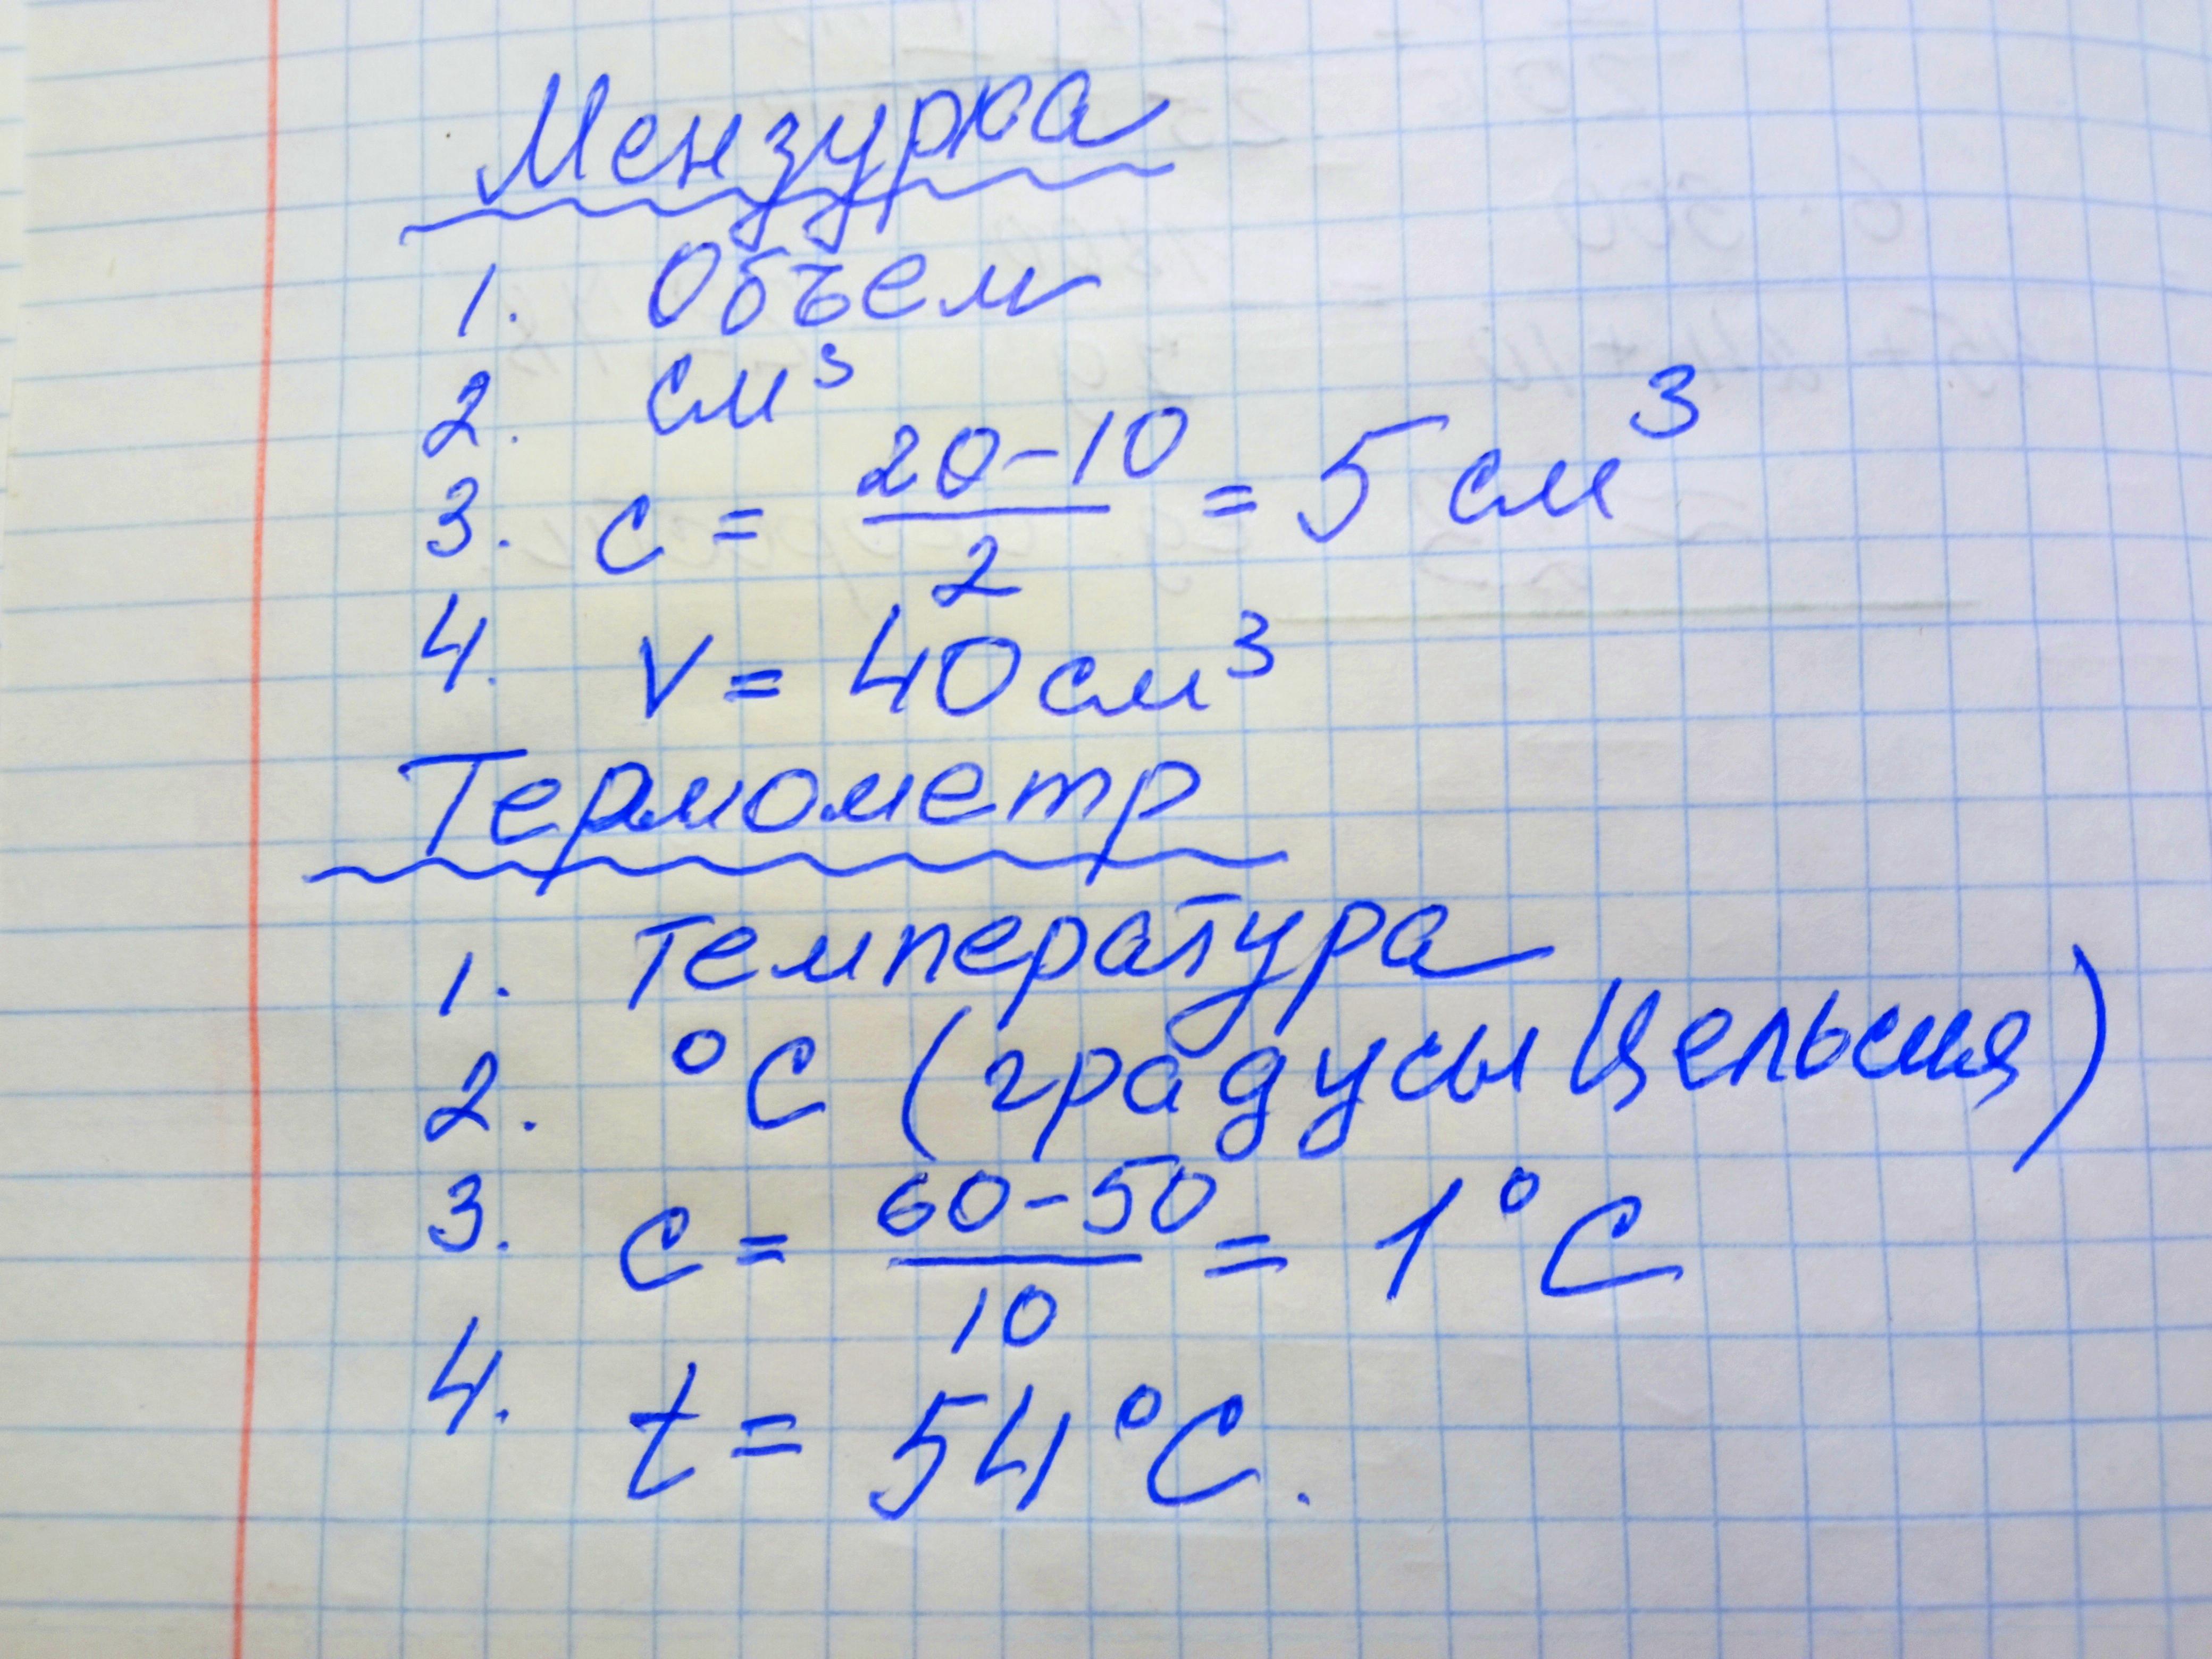 Мензурка
1. Объем
2. см³
3. c = \frac{20-10}{2} = 5 см³
4. V = 40 см³
Термометр
1. Температура
2. °C (градусы Цельсия)
3. c = \frac{60-50}{10} = 1°C
4. t = 54°C.